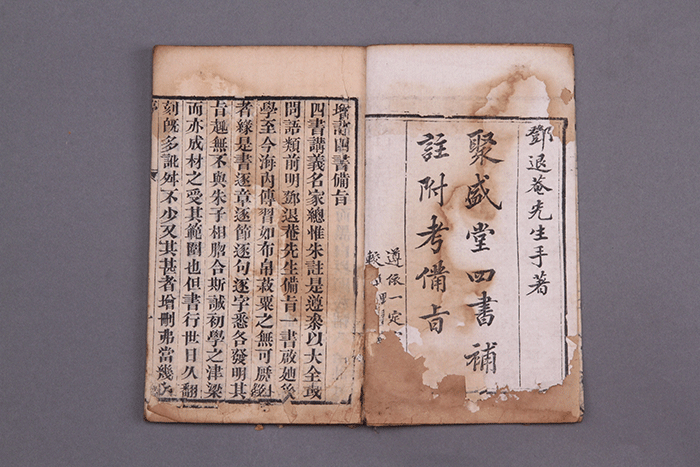 鄧退菴先生手著
聚盛堂四書補
註附考備旨
遵依一定
較
增訂四書備旨
四書講義名家總惟朱註是遵叅以大全或
問語類前明鄧退菴先生備旨一書啟廸後
學至今海內傳習如布帛菽粟之無可厭
者緣是書逐章逐節逐句逐字悉各發明其
旨趣無不與朱子相脗合斯誠初學之津梁
而亦成材之受其範圍也但書行世日久翻
刻旣多訛舛不少又其甚者增刪弗當幾